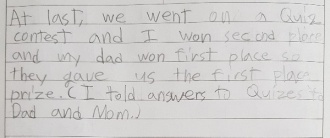 At last, we went on a Quiz
contest and I won second place
and my dad won first place so
they gave us the first place
prize. (I told answers to Quizes to
Dad and Mom.)